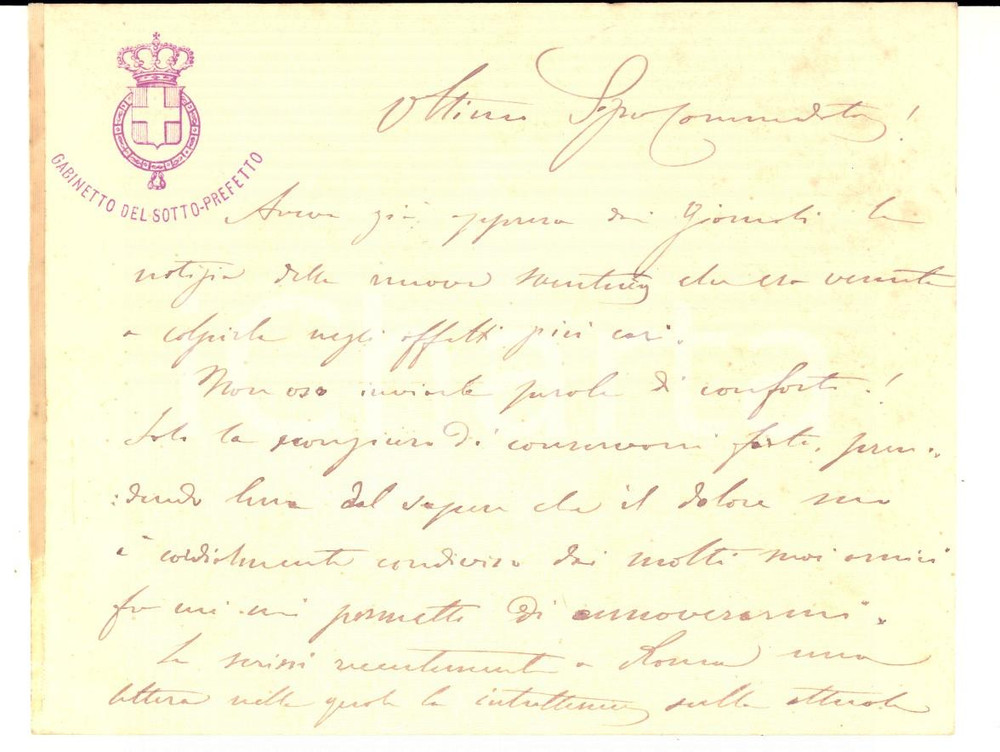 GABINETTO DEL SOTTO-PREFETTO
Ottimo Signor Commendatore!
Aveva già appresa dai Giornali la
notizia della nuova sventura che era venuta
a colpirla negli affetti più cari.
Non oso inviarle parole di conforto!
Solo la scongiuro di conservarsi forte, pren-
dendo lena dal sapere che il dolore suo
è cordialmente condiviso dai molti suoi amici
fra cui mi permetto di annoverarmi.
Le scrissi recentemente a Roma una
lettera nella quale la intrattenevo sulla attuale